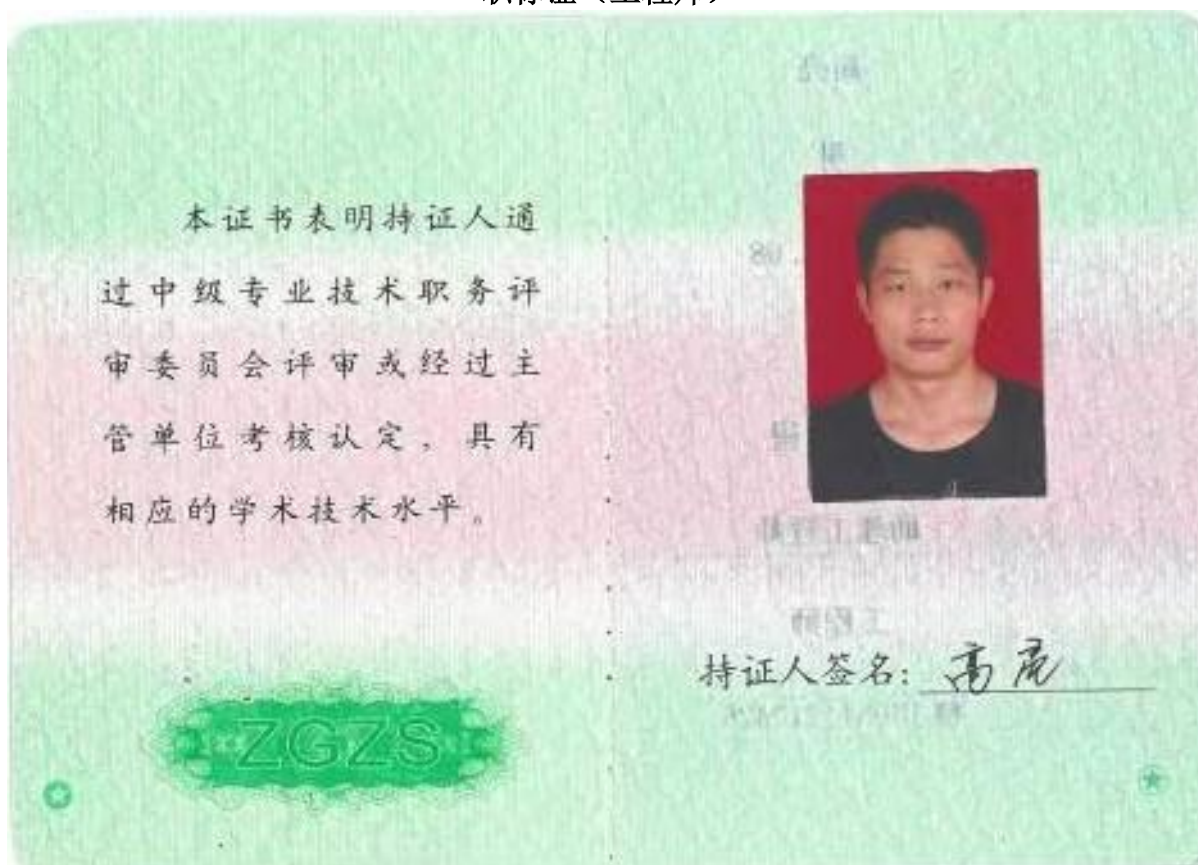 职称证（工程师）
本证书表明持证人通
过中级专业技术职务评
审委员会评审或经过主
管单位考核认定，具有
相应的学术技术水平。
ZGZS
工程师
持证人签名：高